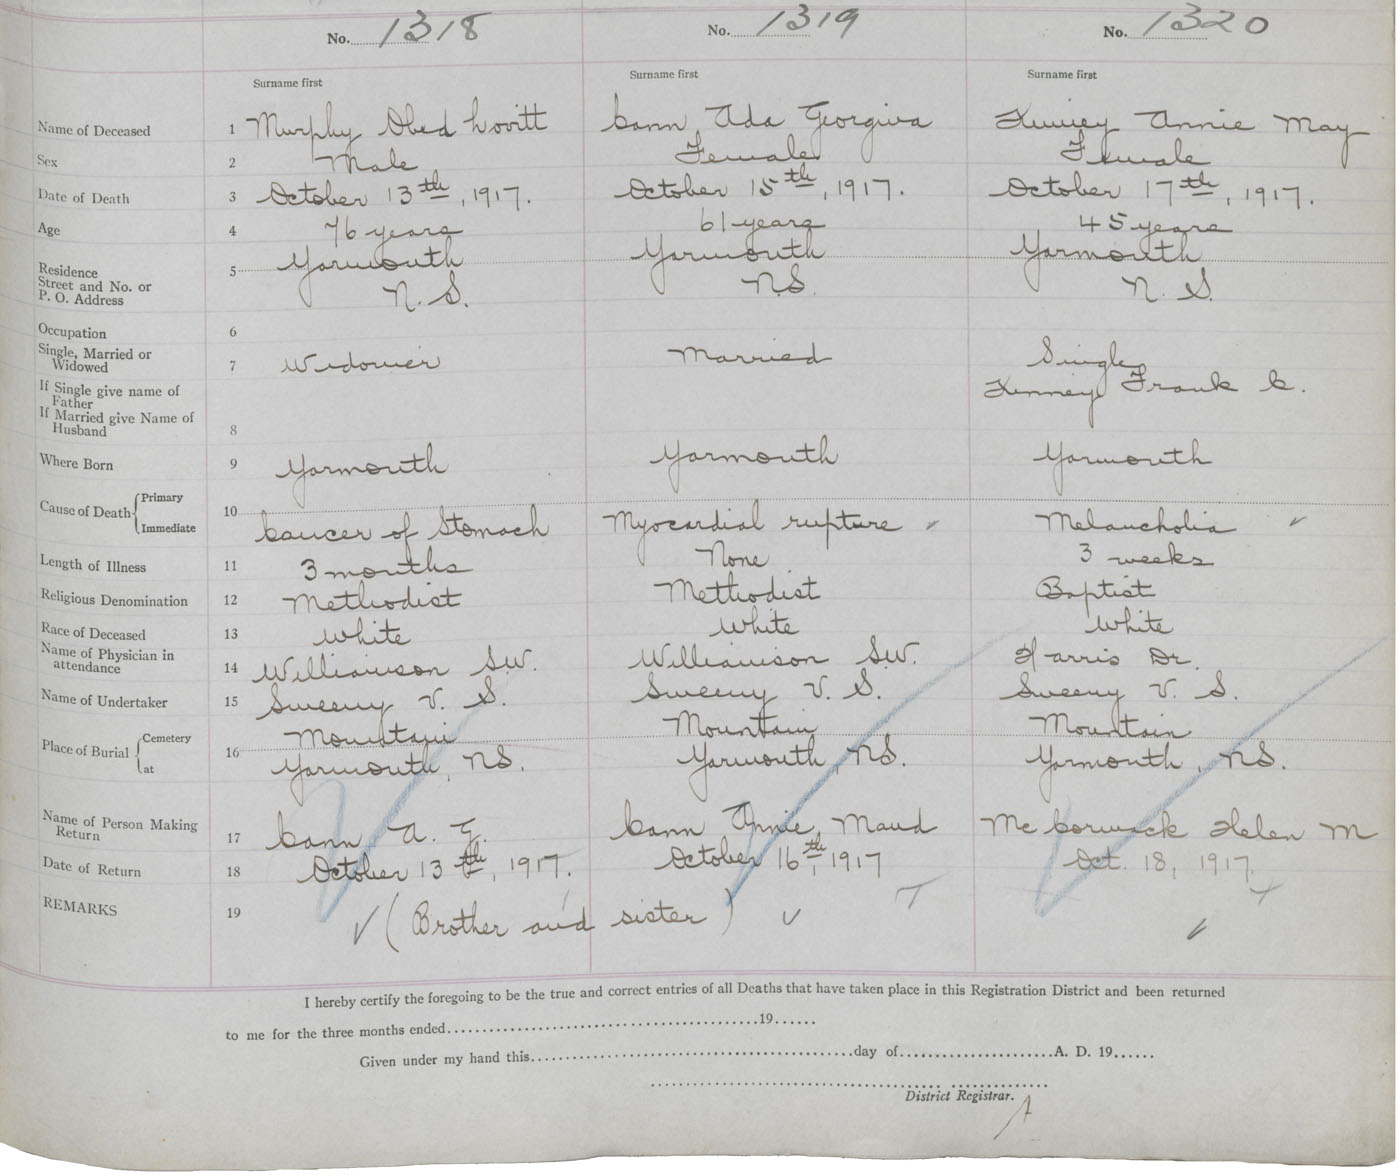 No. 1318 No. 1319 No. 1320
Surname first Surname first Surname first
Name of Deceased 1 Murphy Obed Lovitt Cann Ada Georgina Kinney Annie May
Sex 2 Male Female Female
Date of Death 3 October 13th, 1917. October 15th, 1917. October 17th, 1917.
Age 4 76 years 61 years 45 years
Residence Street and No. or P. O. Address 5 Yarmouth Yarmouth Yarmouth
N. S. N.S. N. S.
Occupation 6
Single, Married or Widowed 7 Widower Married Single
If Single give name of Father Kinney Frank C.
If Married give Name of Husband 8
Where Born 9 Yarmouth Yarmouth Yarmouth
Cause of Death Primary Immediate 10 Cancer of Stomach Myocardial rupture Melancholia
Length of Illness 11 3 months None 3 weeks
Religious Denomination 12 Methodist Methodist Baptist
Race of Deceased 13 White White White
Name of Physician in attendance 14 Williamson S.W. Williamson S.W. Harris Dr.
Name of Undertaker 15 Sweeny V. S. Sweeny V. S. Sweeny V. S.
Place of Burial Cemetery 16 Mountain Mountain Mountain
at Yarmouth, N.S. Yarmouth, N.S. Yarmouth, N.S.
Name of Person Making Return 17 Cann A. G. Cann Annie Maud McCormack Helen M
Date of Return 18 October 13th, 1917. October 16th, 1917 Oct. 18, 1917.
REMARKS 19 (Brother and sister)
I hereby certify the foregoing to be the true and correct entries of all Deaths that have taken place in this Registration District and been returned
to me for the three months ended 19
Given under my hand this day of A. D. 19
District Registrar.